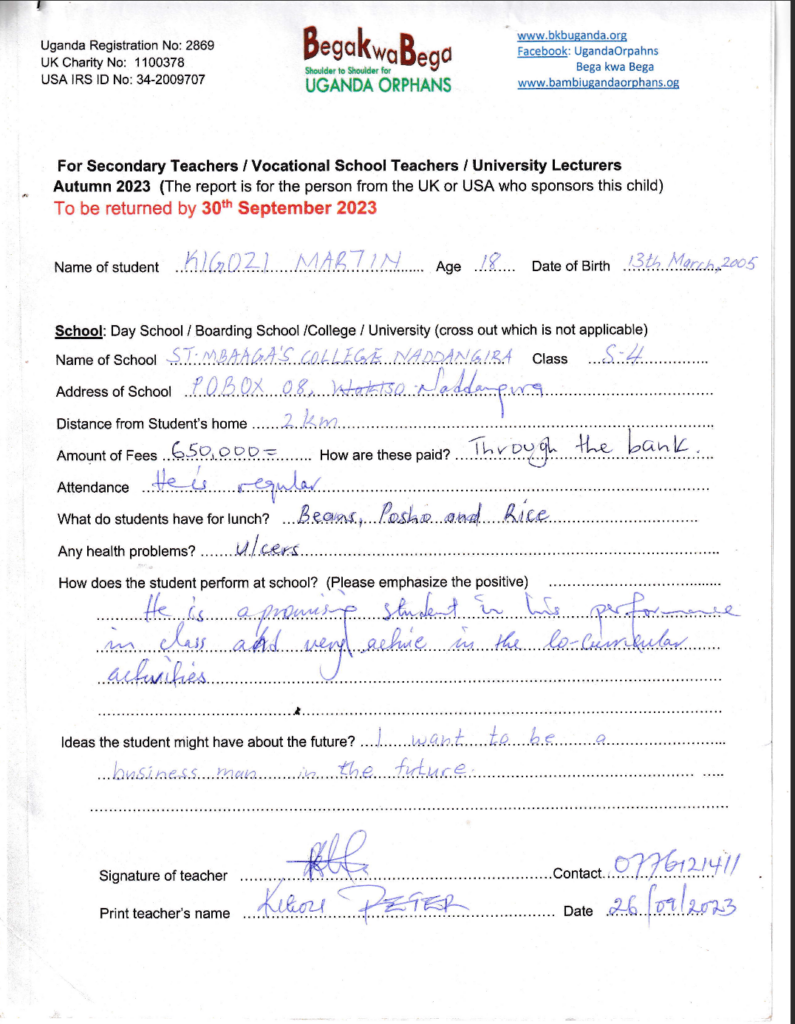 Uganda Registration No: 2869
UK Charity No: 1100378
USA IRS ID No: 34-2009707
BegaKwaBega
Shoulder to Shoulder for
UGANDA ORPHANS
www.bkbuganda.org
Facebook: UgandaOrpahns
Bega kwa Bega
www.bambiugandaorphans.og
For Secondary Teachers / Vocational School Teachers / University Lecturers
Autumn 2023 (The report is for the person from the UK or USA who sponsors this child)
To be returned by 30th September 2023
Name of student KIGOZI MARTIN Age 18 Date of Birth 13th March, 2005
School: Day School / Boarding School /College / University (cross out which is not applicable)
Name of School ST. MBAAGA'S COLLEGE NADDANGIRA Class S-4
Address of School P.O BOX 08, Wakiso Naddangira
Distance from Student's home 2 km
Amount of Fees 650,000= How are these paid? Through the bank.
Attendance He is regular
What do students have for lunch? Beans, Posho and Rice
Any health problems? Ulcers
How does the student perform at school? (Please emphasize the positive)
He is a promising student in his performance
in class and very active in the co-curricular
activities
Ideas the student might have about the future? I want to be a
business man in the future.
Signature of teacher Contact 0776121411
Print teacher's name PETER Date 26/09/2023